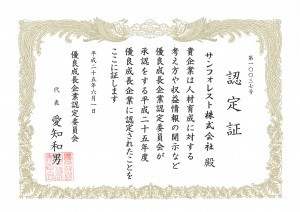 認定証
第一〇〇三七号
サンフォレスト株式会社 殿
貴企業は人材育成に対する
考え方や収益情報の開示など
優良成長企業認定委員会が
承認をする平成二十五年度
優良成長企業に認定されたことを
ここに証します
平成二十五年六月一日
優良成長企業認定委員会
代表 愛知和男